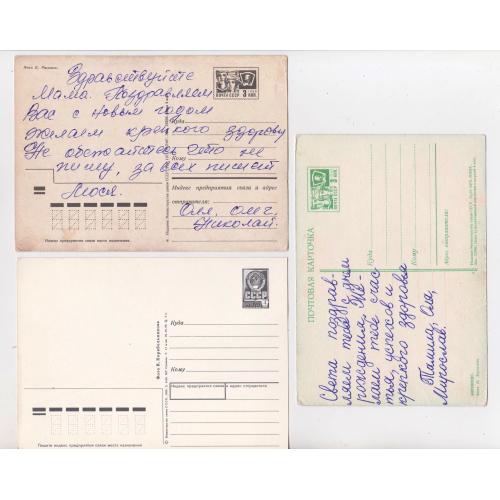 Здравствуйте
Мама. Поздравляем
Вас с новым годом
желаем крепкого здоровья
Не обежайтесь что не
пишу, за всех пишет
Люся.
Оля, Олег,
Николай.
ПОЧТА СССР
3 КОП
Куда
Кому
Индекс предприятия связи и адрес
отправителя:
Пишите индекс предприятия связи места назначения
СССР
Фото В. Корабельникова
Куда
Кому
Индекс предприятия связи и адрес отправителя
Пишите индекс предприятия связи места назначения
ПОЧТОВАЯ КАРТОЧКА
Куда
Кому
Адрес отправителя:
Света поздрав-
ляем тебя с днем
рождения. Же-
лаем тебе счас-
тья, успехов и
крепкого здоровья
Оля,
Мирослав.